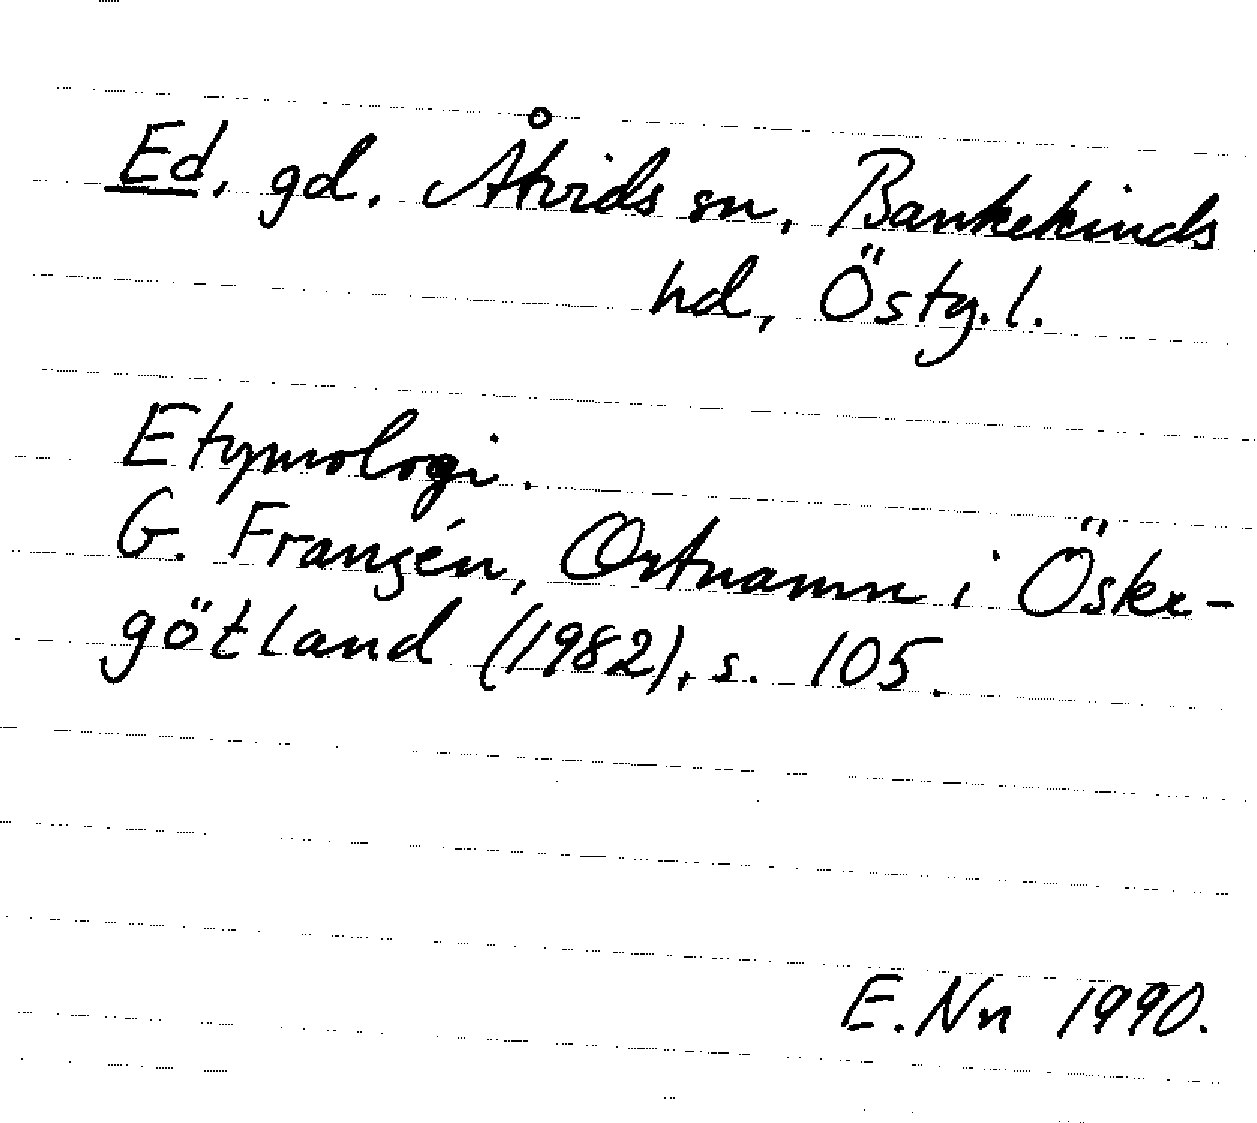 Ed, gd. Åtvids sn, Bankekinds
hd, Östg.l.
Etymologi.
G. Franzén, Ortnamn i Öster-
götland (1982), s. 105.
E. Nn 1990.